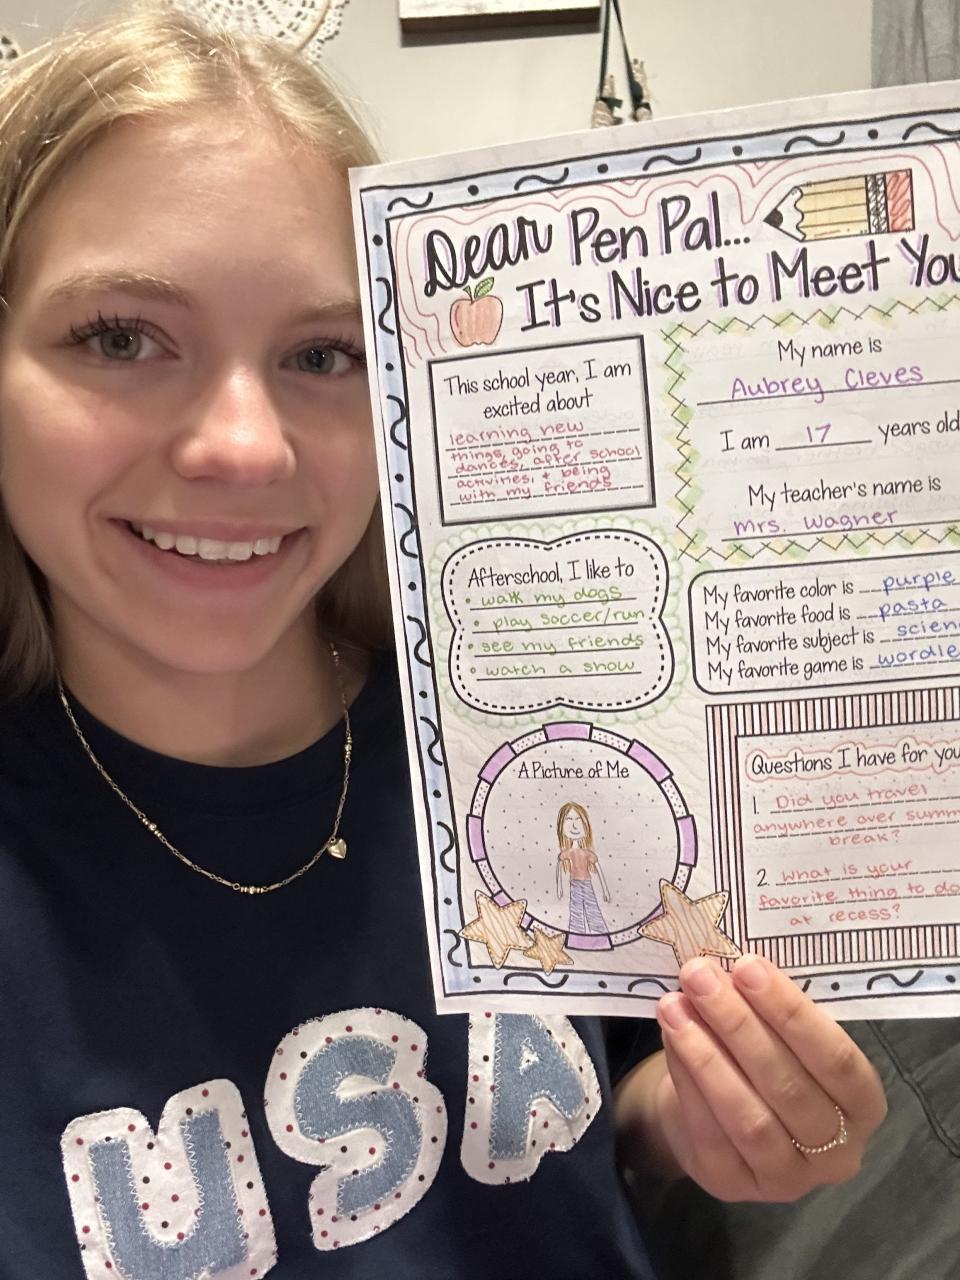 Dear Pen Pal...
It's Nice to Meet You
This school year, I am
excited about
learning new
things, going to
dances, after school
activines, + being
with my friends
My name is
Aubrey Cleves
I am 17 years old
My teacher's name is
mrs. wagner
Afterschool, I like to
• walk my dogs
• play soccer/run
• see my friends
• watch a show
My favorite color is purple
My favorite food is pasta
My favorite subject is scien
My favorite game is wordle
A Picture of Me
Questions I have for you
1. Did you travel
anywhere over summ
break?
2. what is your
favorite thing to do
at recess?
USA